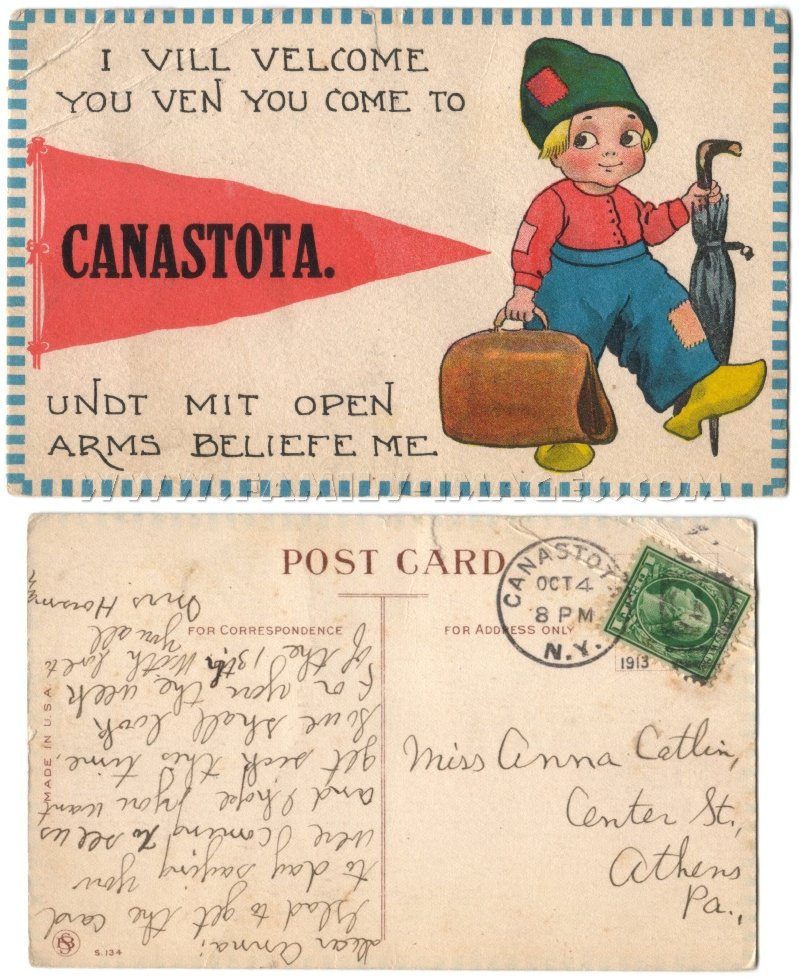 I VILL VELCOME
YOU VEN YOU COME TO
CANASTOTA.
UNDT MIT OPEN
ARMS BELIEFE ME
WWW.FAMILY-IMAGES.COM
POST CARD
FOR CORRESPONDENCE
FOR ADDRESS ONLY
CANASTOT
OCT 4
8 PM
N.Y.
1913
Miss Anna Catlin,
Center St.,
Athens
Pa.,
Dear Anna;
Glad to get the card
to day saying you
were coming to see us
and I hope you wont
get sick this time.
So we shall look
for you the week
of the 13th. With love to
you all
Mrs
MADE IN U.S.A.
S.134